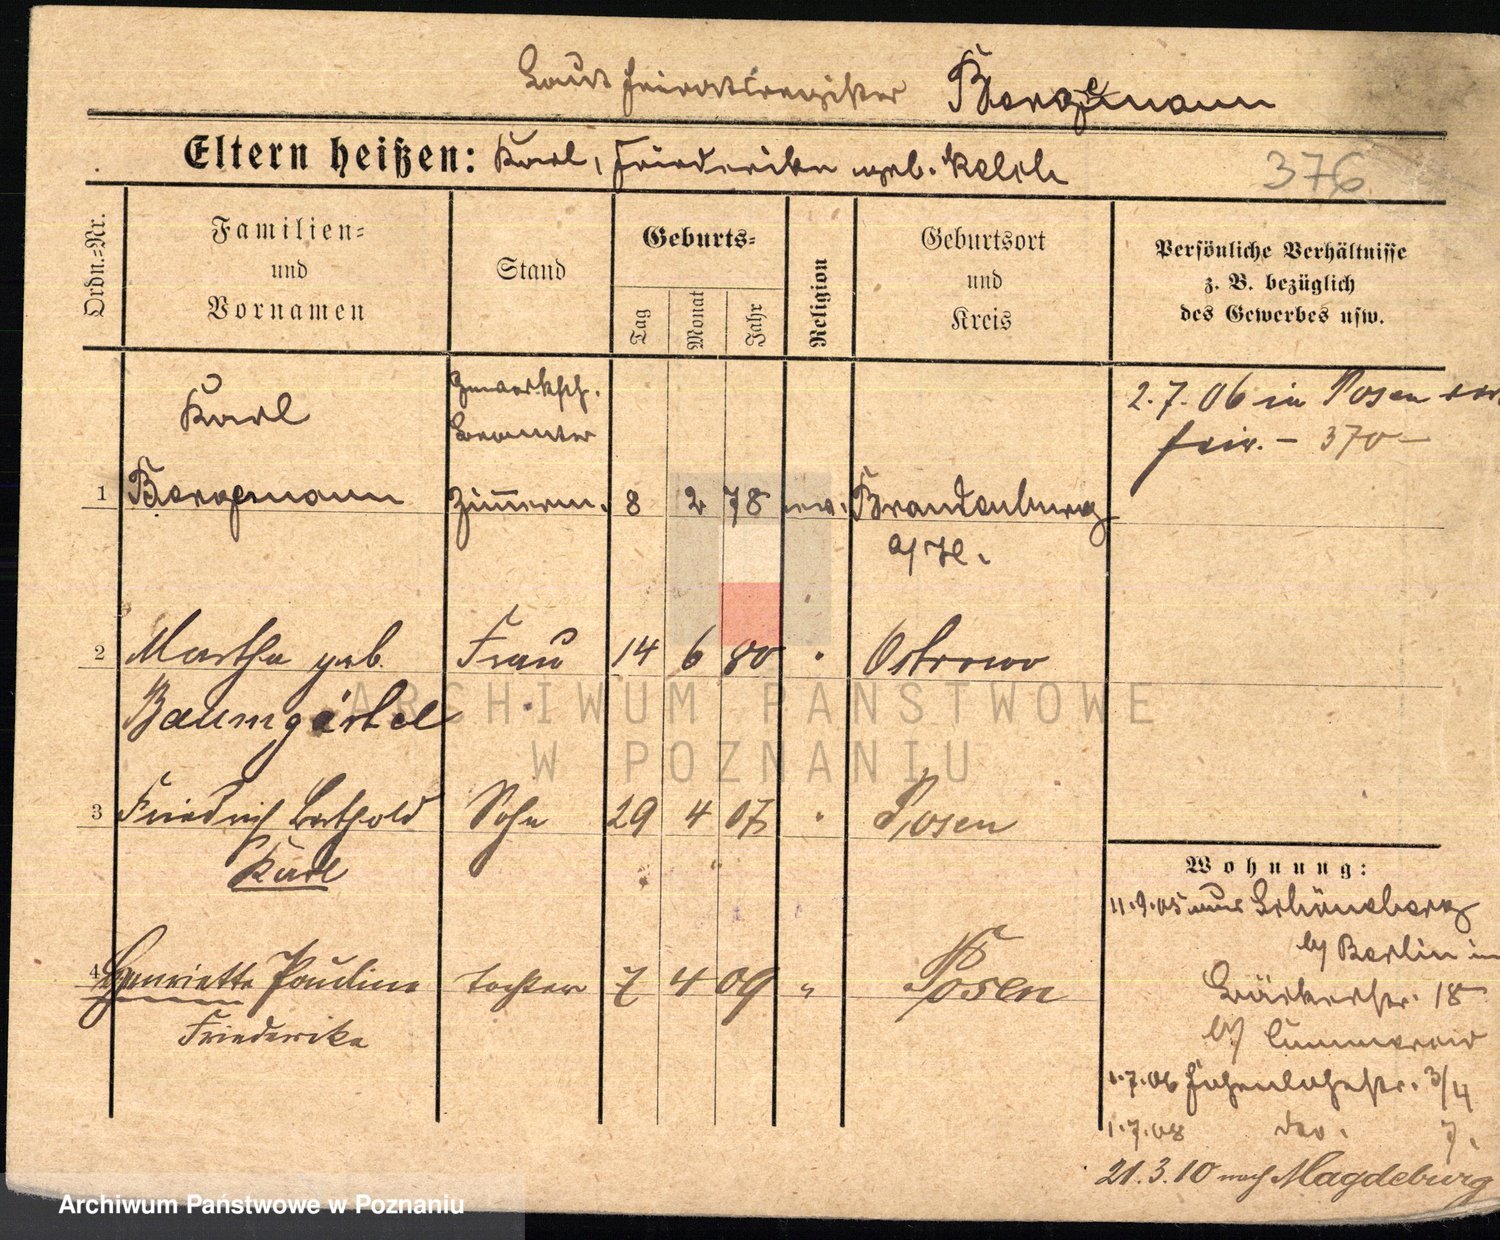 Laut Heiratsregister Bergemann
Eltern heißen: Karl, Friederike geb. Kelch
376
Ordn.-Nr.
Familien-
und
Vornamen
Stand
Geburts-
Tag
Monat
Jahr
Religion
Geburtsort
und
Kreis
Persönliche Verhältnisse
z. B. bezüglich
des Gewerbes usw.
Karl
Gewerksch.
Beamter
2.7.06 in Posen
heir. – 370 –
1 Bergemann Zimmerm. 8 2 78 ev. Brandenburg
a/H.
2 Martha geb. Frau 14 6 80 " Ostrowo
Baumgärtel
3 Friedrich Berthold Sohn 29 4 07 " Posen
Karl
4 Henriette Pauline Tochter 7 4 09 " Posen
Friederike
Wohnung:
11.9.05 aus Schöneberg
b/ Berlin in
Bäckerstr. 18
b/
1.7.06 Hohenlohestr. 3/4
1.7.08 do. 7.
21.3.10 nach Magdeburg
ARCHIWUM PAŃSTWOWE
W POZNANIU
Archiwum Państwowe w Poznaniu